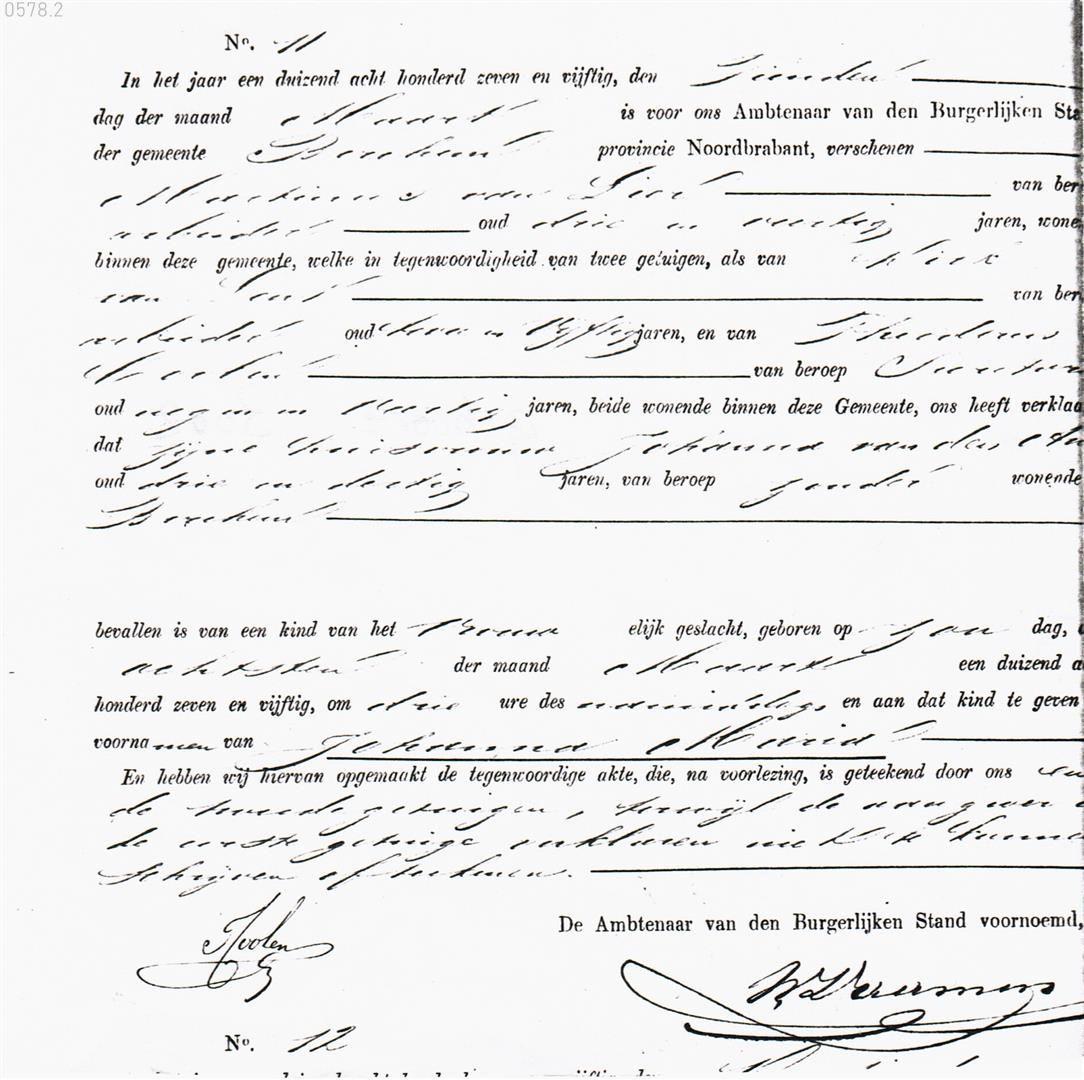 0578.2
No. 11
In het jaar een duizend acht honderd zeven en vijftig, den Tienden
dag der maand Maart is voor ons Ambtenaar van den Burgerlijken Sta
der gemeente Berchem provincie Noordbrabant, verschenen
Martinus van Lier van ber
arbeider oud drie en veertig jaren, wone
binnen deze gemeente, welke in tegenwoordigheid van twee getuigen, als van
van van ber
arbeider oud twee en Vijftig jaren, en van Theodorus
van beroep
oud negen en Veertig jaren, beide wonende binnen deze Gemeente, ons heeft verklaa
dat zijne huisvrouw Johanna van den
oud drie en dertig jaren, van beroep zonder wonende
Berchem
bevallen is van een kind van het Vrouw elijk geslacht, geboren op Zon dag, d
achtsten der maand Maart een duizend a
honderd zeven en vijftig, om drie ure des namiddags en aan dat kind te geven
voornamen van Johanna Maria
En hebben wij hiervan opgemaakt de tegenwoordige akte, die, na voorlezing, is geteekend door ons en
de tweede getuigen, terwijl de aangever
de eerste getuige verklaren niet te kunne
schrijven of teekenen.
De Ambtenaar van den Burgerlijken Stand voornoemd,
No. 12